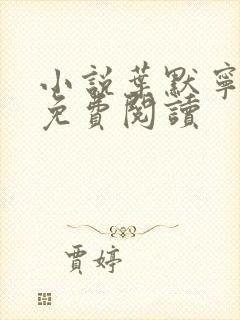 小說葉默寧
免費閱讀
賈婷